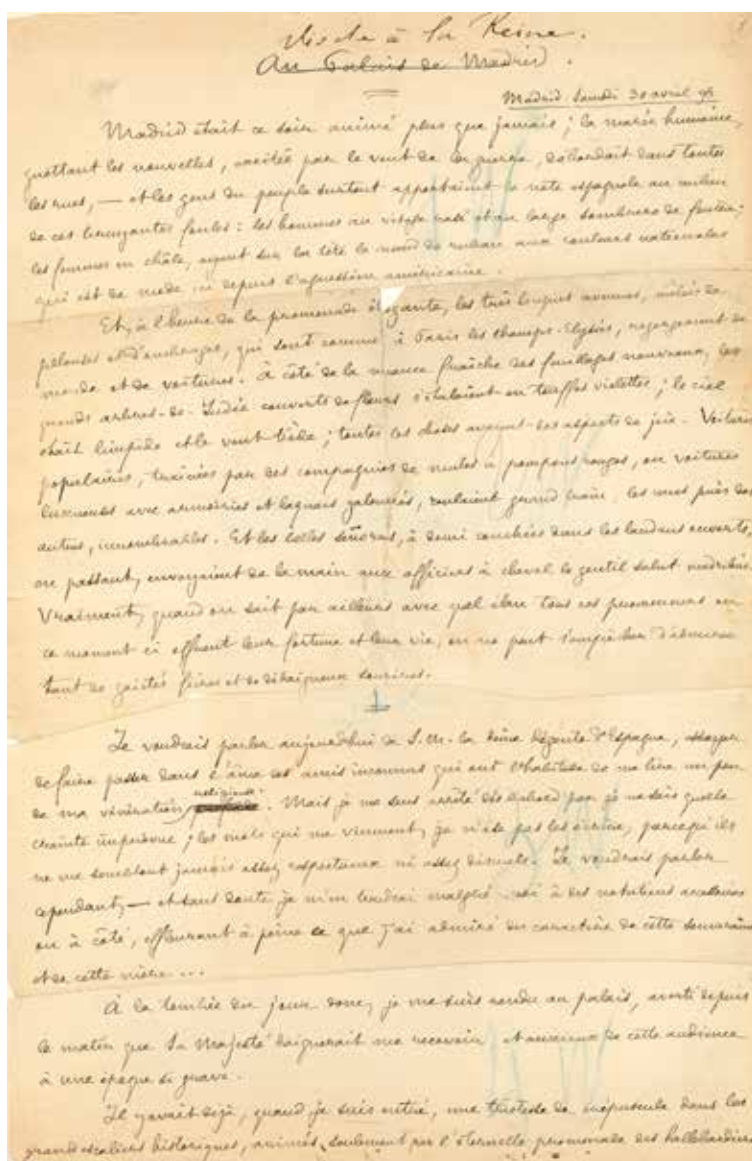 Visite à la Reine.
Au Palais de Madrid.
Madrid samedi 30 avril 98
Madrid était ce soir animé plus que jamais ; la marée humaine,
guettant les nouvelles, excitée par le vent de la guerre, débordait dans toutes
les rues, — et les gens du peuple surtout apportaient la note espagnole au milieu
de ces bruyantes foules : les hommes au visage rasé et au large sombrero de feutre ;
les femmes en châle, ayant sur la tête le nœud de ruban aux couleurs nationales
qui est de mode ici depuis l'agression américaine.
Et, à l'heure de la promenade élégante, les très longues avenues, mêlées de
pelouses et d'ombrages, qui sont comme à Paris les Champs-Elysées, regorgeaient de
monde et de voitures. À côté de la nuance fraîche des feuillages nouveaux, les
grands arbres-de-Judée couverts de fleurs s'étalaient en touffes violettes ; le ciel
était limpide et le vent tiède ; toutes les choses avaient des aspects de joie. Voitures
populaires, traînées par des compagnies de mules à pompons rouges, ou voitures
luxueuses avec armoiries et laquais galonnés, roulaient grand train, les unes près des
autres, innombrables. Et les belles señoras, à demi couchées dans les landaus ouverts,
en passant, envoyaient de la main aux officiers à cheval le gentil salut madrilène.
Vraiment, quand on sait par ailleurs avec quel élan tous ces promeneurs en
ce moment ci offrent leur fortune et leur vie, on ne peut s'empêcher d'admirer
tant de gaietés fières et de dédaigneux sourires.
Je voudrais parler aujourd'hui de S. M. la Reine Régente d'Espagne, essayer
de faire passer dans l'âme des amis inconnus qui ont l'habitude de me lire un peu
religieuse
de ma vénération. Mais je me sens arrêté dès l'abord par je ne sais quelle
crainte imprévue ; les mots qui me viennent, je n'ose pas les écrire, parce qu'ils
ne me semblent jamais assez respectueux ni assez discrets. Je voudrais parler
cependant, — et sans doute je m'en tiendrai malgré moi à des notations
ou à côté, effleurant à peine ce que j'ai admiré du caractère de cette souveraine
et de cette mère ...
À la tombée du jour donc, je me suis rendu au palais, averti depuis
le matin que Sa Majesté daignerait me recevoir, et anxieux de cette audience
à une époque si grave.
Il y avait déjà, quand je suis entré, une tristesse de crépuscule dans les
grands escaliers historiques, animés seulement par l'éternelle promenade des hallebardiers